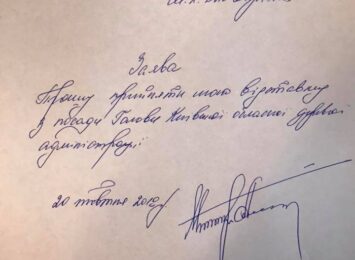 Заява
Прошу прийняти мою відставку
з посади Голови Київської обласної державної
адміністрації
20 жовтня